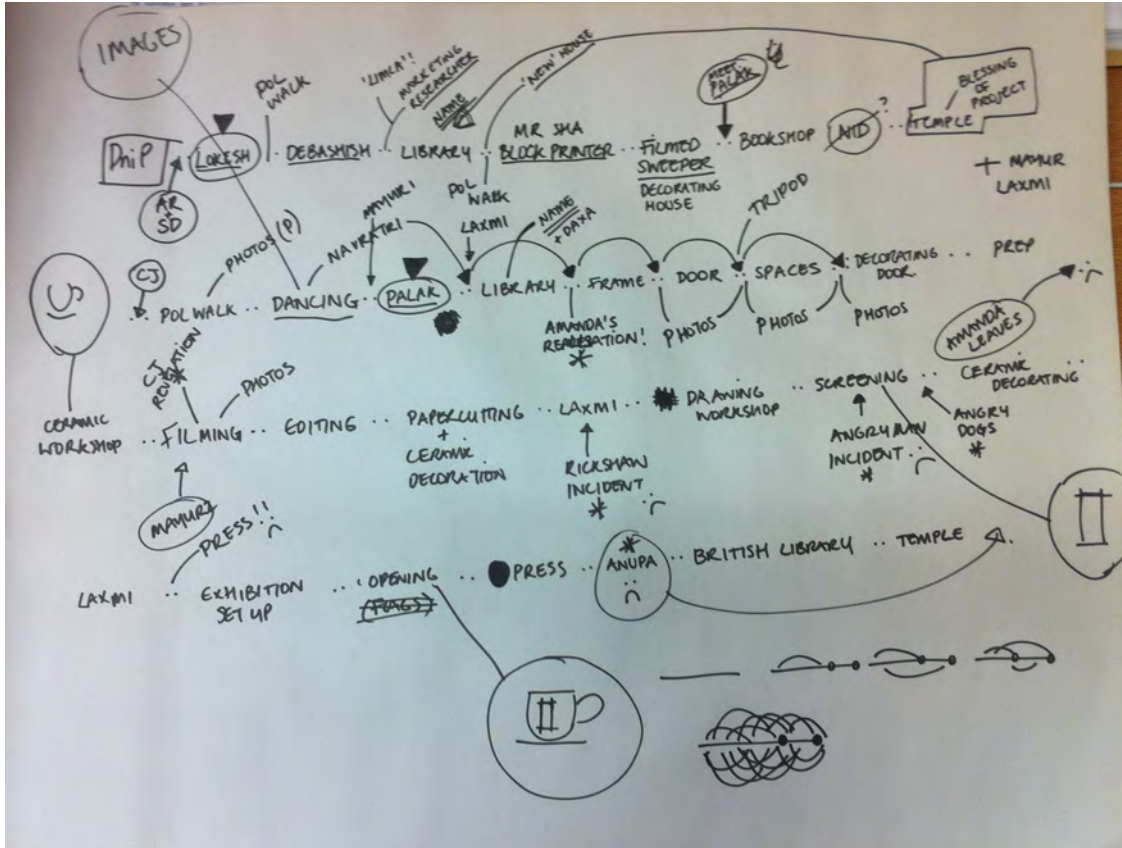 IMAGES
POL WALK
'LIMCA'!
MARKETING
RESEARCHER
NAME
'NEW' HOUSE
MEET
PALAK
BLESSING
OF
PROJECT
DniP
LOKESH
DEBASHISH
LIBRARY
MR SHA
BLOCK PRINTER
FILMED
SWEEPER
DECORATING
HOUSE
BOOKSHOP
?
TEMPLE
+ MAYUR
LAXMI
AR
+
SD
PHOTOS (P)
NAVRATRI
MAYURI
POL
WALK
LAXMI
NAME
+ DAXA
TRIPOD
CJ
POL WALK
DANCING
PALAK
LIBRARY
FRAME
DOOR
SPACES
DECORATING
DOOR
PREP
AMANDA'S
REALISATION!
*
PHOTOS
PHOTOS
PHOTOS
AMANDA
LEAVES
CJ
REVELATION
*
PHOTOS
CERAMIC
WORKSHOP
FILMING
EDITING
PAPERCUTTING
+
CERAMIC
DECORATION
LAXMI
DRAWING
WORKSHOP
SCREENING
CERAMIC
DECORATING
RICKSHAW
INCIDENT
*
ANGRY MAN
INCIDENT
*
ANGRY
DOGS
*
MAYURI
PRESS!!
LAXMI
EXHIBITION
SET UP
OPENING
(FLAGS)
PRESS
*
ANUPA
BRITISH LIBRARY
TEMPLE